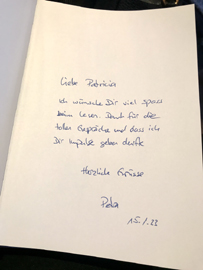 Liebe Patricia
ich wünsche Dir viel Spass
beim Lesen. Dank für die
tollen Gespräche und dass ich
Dir Impulse geben durfte
Herzliche Grüsse
Peter
15.1.23